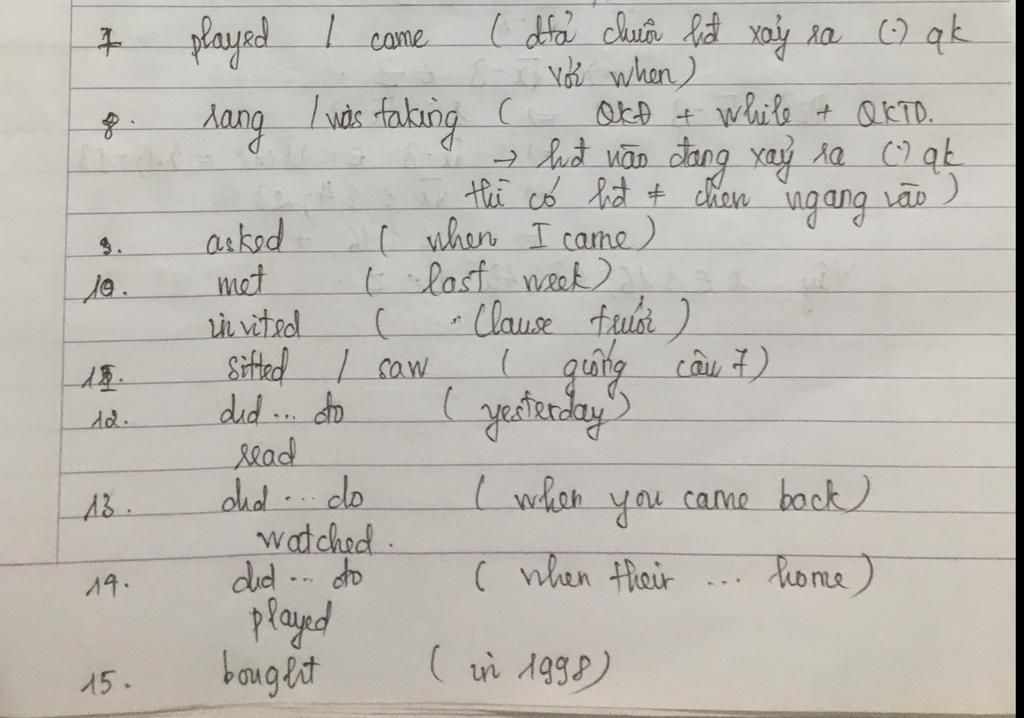 7 played / came (dtả chuỗi hđ xảy ra (·) qk
với when)
8. rang / was taking ( QKĐ + while + QKTD.
→ hđ nào đang xảy ra (·) qk
thì có hđ ≠ chen ngang vào)
9. asked (when I came)
10. met (last week)
invited (Clause trước)
11. sifted / saw (giống câu 7)
12. did ... do (yesterday)
read
13. did ... do (when you came back)
watched.
14. did ... do (when their ... home)
played
15. bought (in 1998)